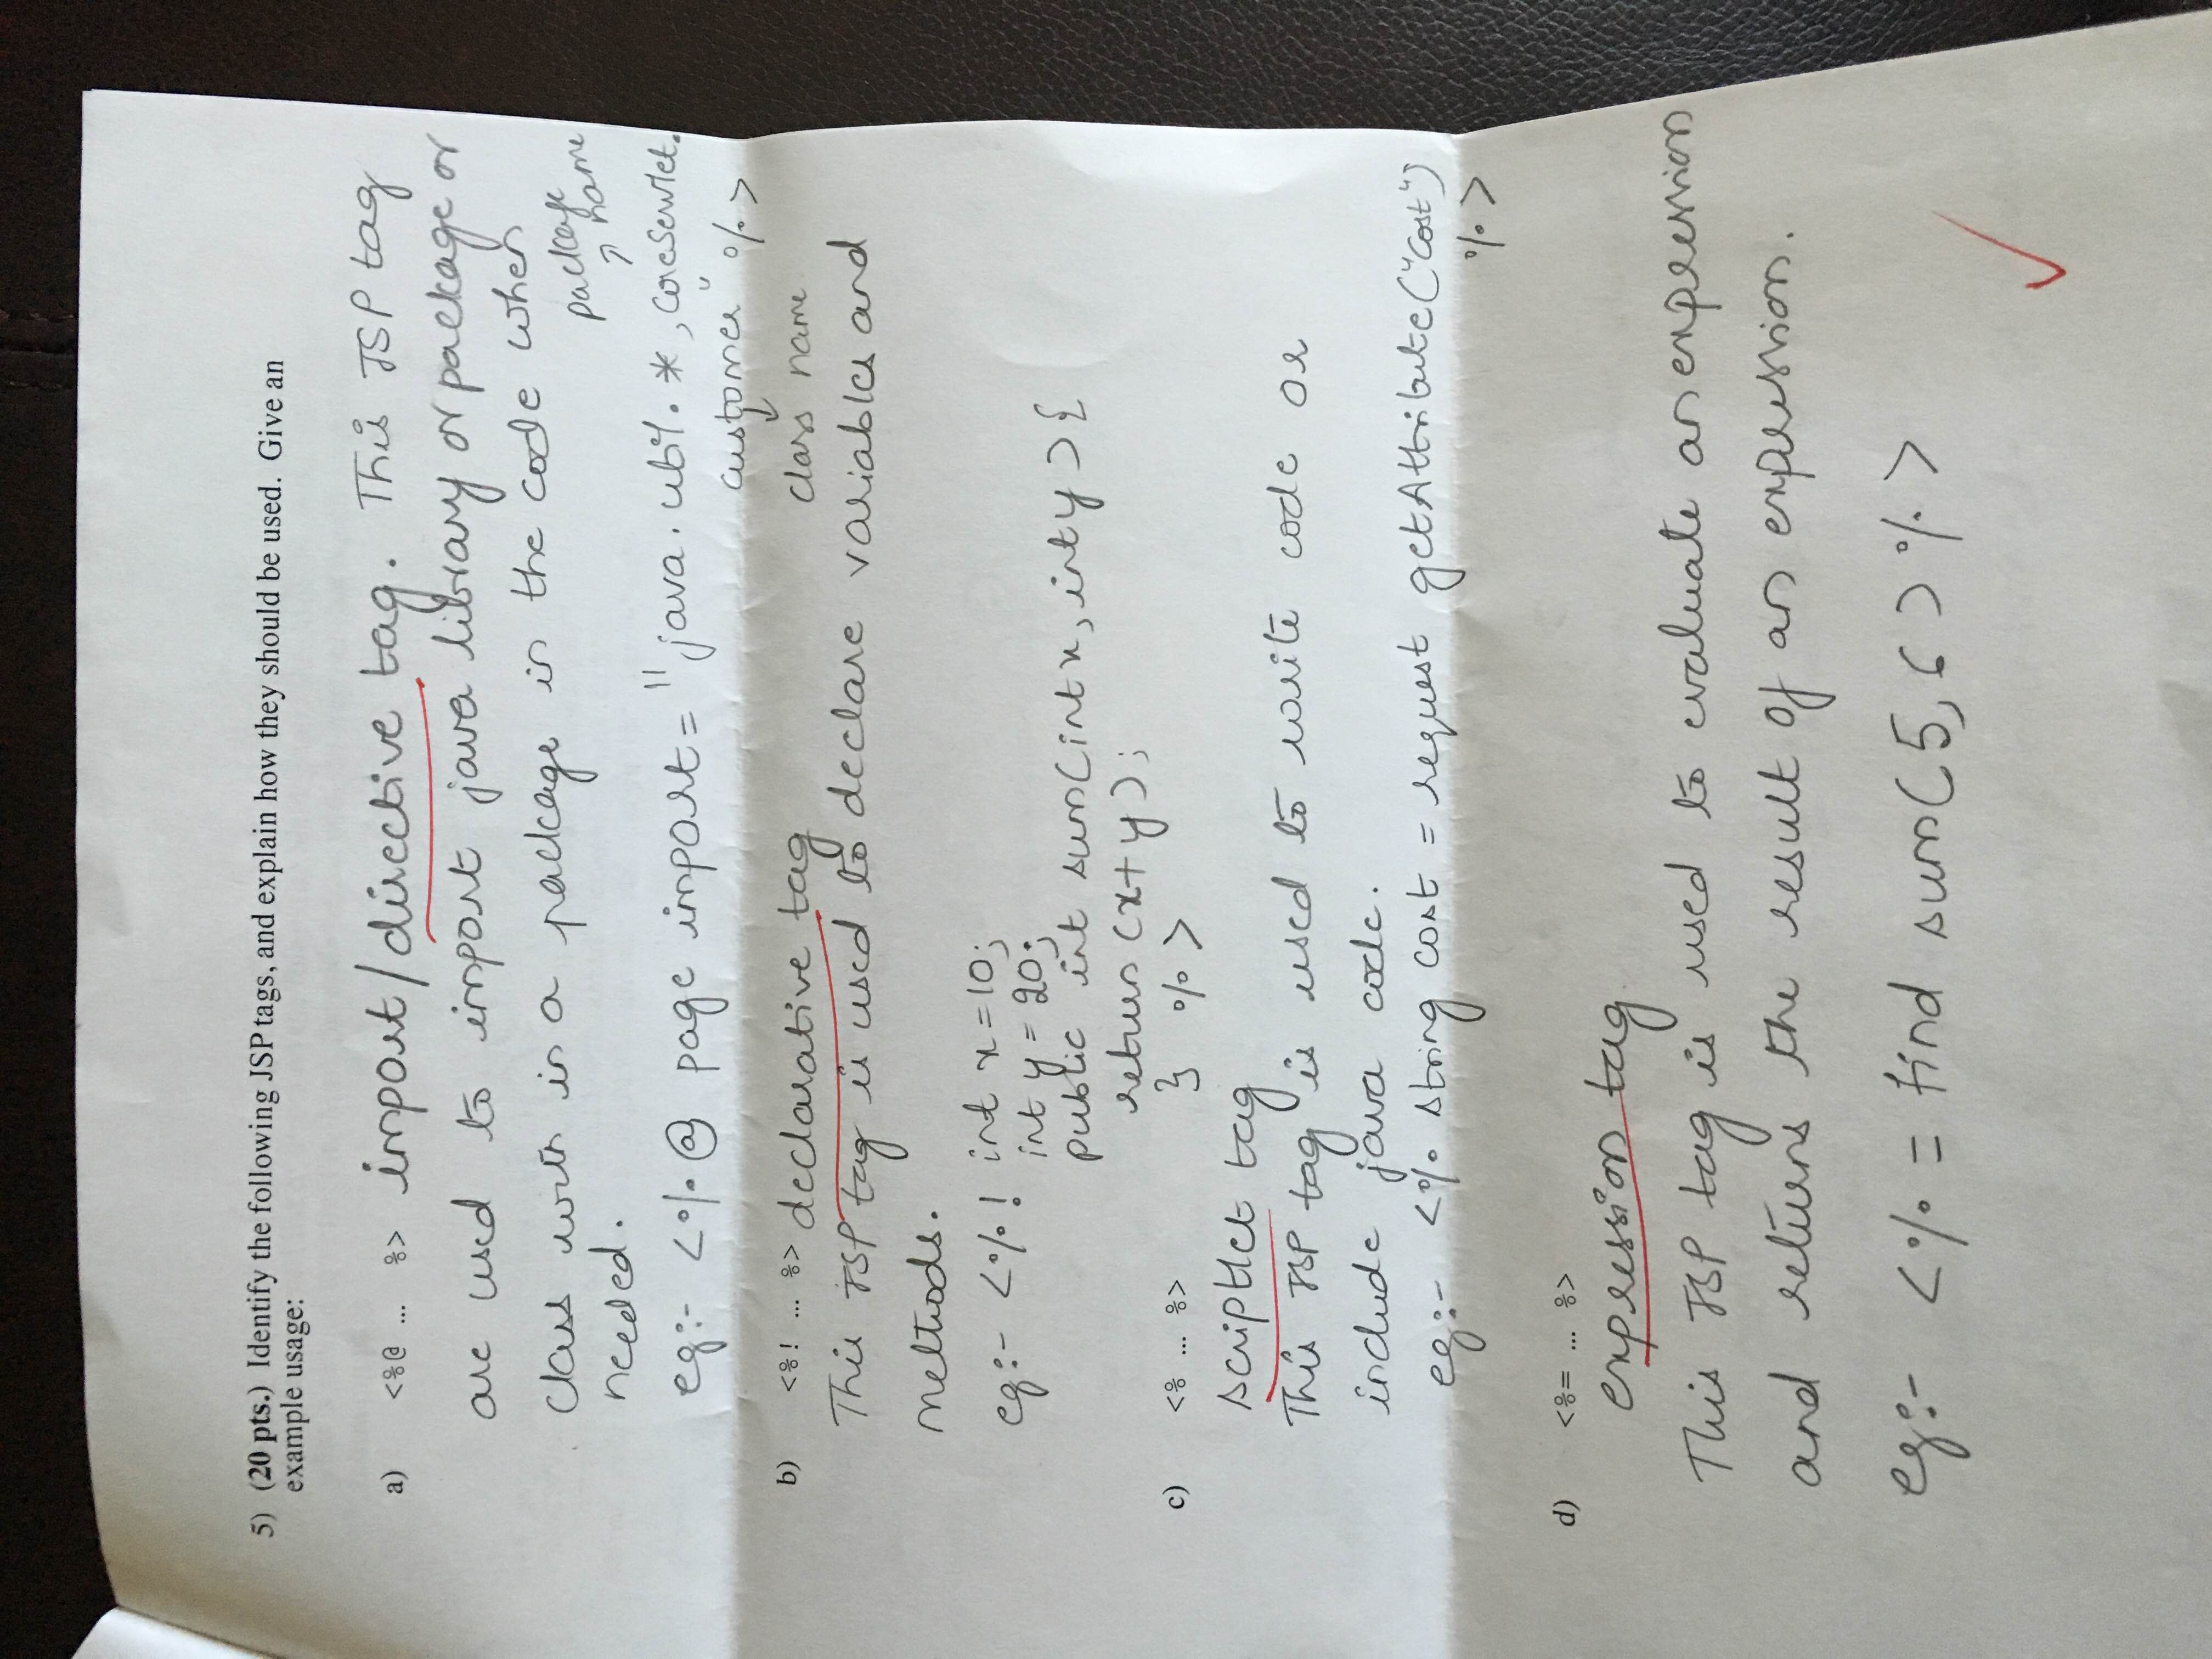 5) (20 pts.) Identify the following JSP tags, and explain how they should be used. Give an
example usage:
a) <%@ ... %> import/directive tag. This JSP tag
are used to import java library or package or
class with in a package in the code when
needed.
package
name
eg:- <%@ page import="java.util.*, coreServlet.
customer" %>
class name
b) <%! ... %> declarative tag
This JSP tag is used to declare variables and
methods.
eg:- <%! int x=10;
int y = 20;
public int sum(int x, int y) {
return (x+y);
} %>
c) <% ... %>
scriptlet tag
This JSP tag is used to write code or
include java code.
eg:- <% string cost = request getAttribute("cost")
%>
d) <%= ... %>
expression tag
This JSP tag is used to evaluate an expression
and returns the result of an expression.
eg:- <% = find sum(5,6) %>